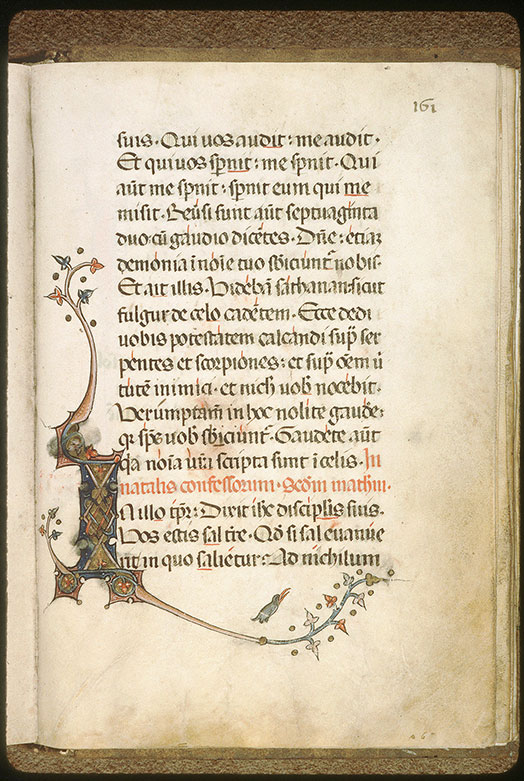 161
suis · Qui uos audit : me audit ·
Et qui uos sp̄nit : me sp̄nit · Qui
aūt me sp̄nit : sp̄nit eum qui me
misit · Reūsi sunt aūt septuaginta
duo : cū gaudio dicētes · Dn̄e : etiaꝫ
demonia ī noīe tuo sb̄iciunt᷑ nobis ·
Et ait illis · Videbā sathanan sicut
fulgur de celo cadētem · Ecce dedi
uobis potestatem calcandi sup̄ ser
pentes et scorpiones : et sup̄ oēm ū
tutē inimici · et nich̄ uob̄ nocebit ·
Verūmptam̄ in hoc nolite gaudē
qꝛ sp̄s uob̄ sb̄iciunt᷑ · Gaudete aūt
qḁ noīa ur̄a scripta sunt ī celis · In
natalis confessorum · Scd̄m math̄m ·
IN illo tp̄r : Dixit ih̄c discipl̄is suis ·
Vos estis sal tr̄e · Qd̄ si sal euanue
rit in quo salietur : Ad nichilum